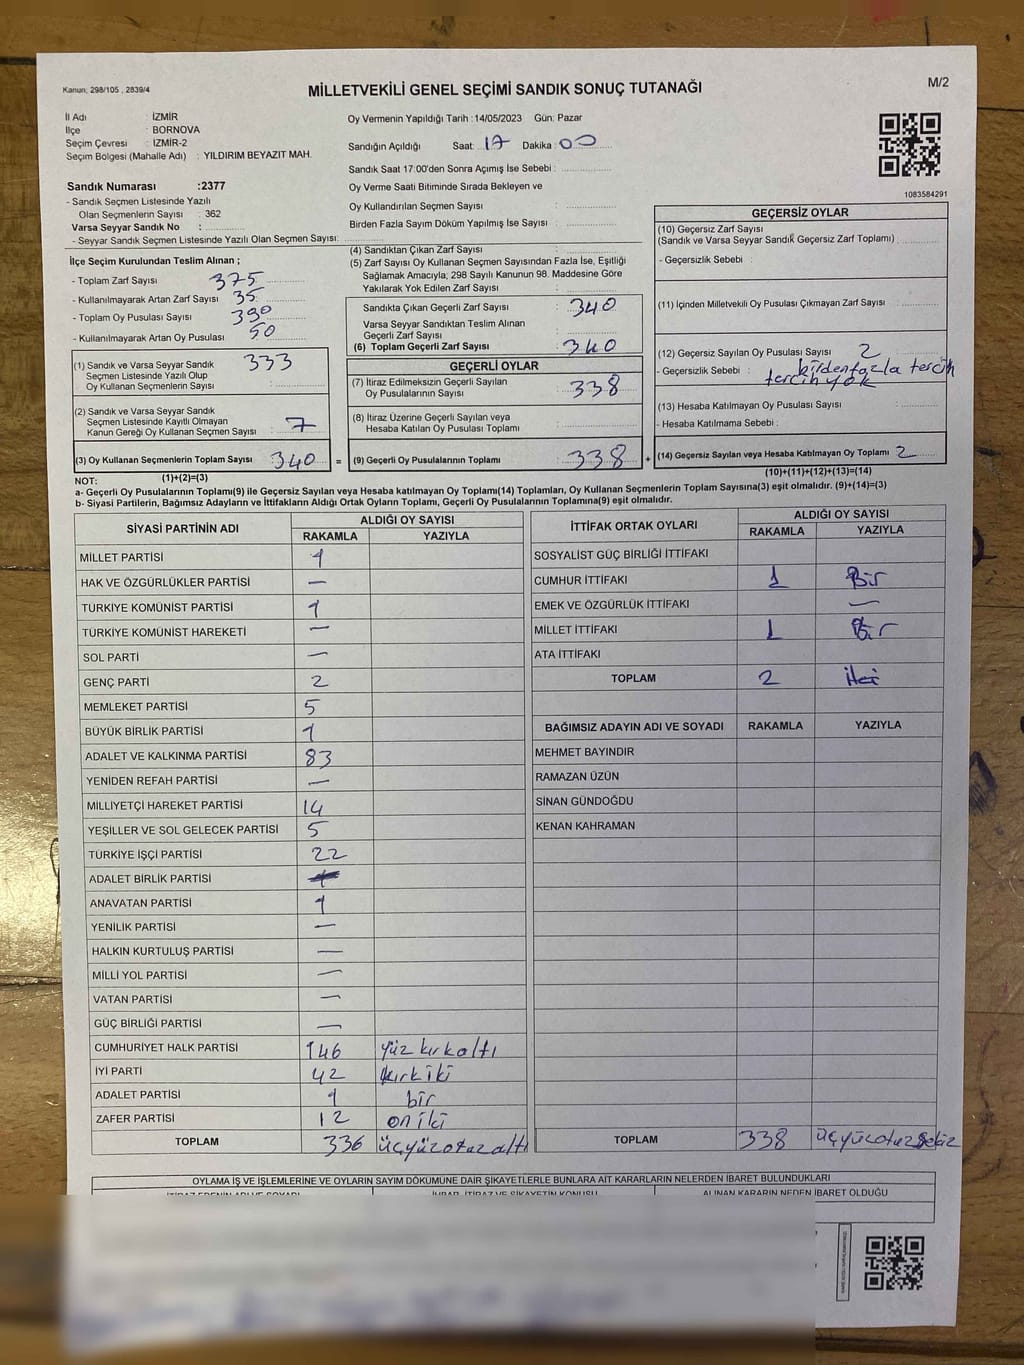 Kanun, 298/105 , 2839/4
MİLLETVEKİLİ GENEL SEÇİMİ SANDIK SONUÇ TUTANAĞI
M/2
İl Adı : İZMİR
İlçe : BORNOVA
Seçim Çevresi : İZMİR-2
Seçim Bölgesi (Mahalle Adı) : YILDIRIM BEYAZIT MAH.
Sandık Numarası :2377
- Sandık Seçmen Listesinde Yazılı
Olan Seçmenlerin Sayısı : 362
Varsa Seyyar Sandık No :
- Seyyar Sandık Seçmen Listesinde Yazılı Olan Seçmen Sayısı:
Oy Vermenin Yapıldığı Tarih :14/05/2023 Gün: Pazar
Sandığın Açıldığı Saat: 17 Dakika: 00
Sandık Saat 17:00'den Sonra Açımış İse Sebebi :
Oy Verme Saati Bitiminde Sırada Bekleyen ve
Oy Kullandırılan Seçmen Sayısı :
Birden Fazla Sayım Döküm Yapılmış İse Sayısı :
1083584291
İlçe Seçim Kurulundan Teslim Alınan ;
- Toplam Zarf Sayısı : 375
- Kullanılmayarak Artan Zarf Sayısı : 35
- Toplam Oy Pusulası Sayısı : 390
- Kullanılmayarak Artan Oy Pusulası : 50
(1) Sandık ve Varsa Seyyar Sandık 333
Seçmen Listesinde Yazılı Olup
Oy Kullanan Seçmenlerin Sayısı :
(2) Sandık ve Varsa Seyyar Sandık
Seçmen Listesinde Kayıtlı Olmayan
Kanun Gereği Oy Kullanan Seçmen Sayısı : 7
(3) Oy Kullanan Seçmenlerin Toplam Sayısı : 340
(1)+(2)=(3)
(4) Sandıktan Çıkan Zarf Sayısı :
(5) Zarf Sayısı Oy Kullanan Seçmen Sayısından Fazla İse, Eşitliği
Sağlamak Amacıyla; 298 Sayılı Kanunun 98. Maddesine Göre
Yakılarak Yok Edilen Zarf Sayısı :
Sandıkta Çıkan Geçerli Zarf Sayısı : 340
Varsa Seyyar Sandıktan Teslim Alınan
Geçerli Zarf Sayısı :
(6) Toplam Geçerli Zarf Sayısı : 340
GEÇERLİ OYLAR
(7) İtiraz Edilmeksizin Geçerli Sayılan
Oy Pusulalarının Sayısı : 338
(8) İtiraz Üzerine Geçerli Sayılan veya
Hesaba Katılan Oy Pusulası Toplamı :
= (9) Geçerli Oy Pusulalarının Toplamı : 338
GEÇERSİZ OYLAR
(10) Geçersiz Zarf Sayısı
(Sandık ve Varsa Seyyar Sandık Geçersiz Zarf Toplamı) :
- Geçersizlik Sebebi :
(11) İçinden Milletvekili Oy Pusulası Çıkmayan Zarf Sayısı :
(12) Geçersiz Sayılan Oy Pusulası Sayısı : 2
- Geçersizlik Sebebi : birden fazla tercih
tercih yok
(13) Hesaba Katılmayan Oy Pusulası Sayısı :
- Hesaba Katılmama Sebebi :
+ (14) Geçersiz Sayılan veya Hesaba Katılmayan Oy Toplamı : 2
(10)+(11)+(12)+(13)=(14)
NOT:
a- Geçerli Oy Pusulalarının Toplamı(9) ile Geçersiz Sayılan veya Hesaba katılmayan Oy Toplamı(14) Toplamları, Oy Kullanan Seçmenlerin Toplam Sayısına(3) eşit olmalıdır. (9)+(14)=(3)
b- Siyasi Partilerin, Bağımsız Adayların ve İttifakların Aldığı Ortak Oyların Toplamı, Geçerli Oy Pusulalarının Toplamına(9) eşit olmalıdır.
SİYASİ PARTİNİN ADI ALDIĞI OY SAYISI
RAKAMLA YAZIYLA
MİLLET PARTİSİ 1
HAK VE ÖZGÜRLÜKLER PARTİSİ —
TÜRKİYE KOMÜNİST PARTİSİ 1
TÜRKİYE KOMÜNİST HAREKETİ —
SOL PARTİ —
GENÇ PARTİ 2
MEMLEKET PARTİSİ 5
BÜYÜK BİRLİK PARTİSİ 1
ADALET VE KALKINMA PARTİSİ 83
YENİDEN REFAH PARTİSİ —
MİLLİYETÇİ HAREKET PARTİSİ 14
YEŞİLLER VE SOL GELECEK PARTİSİ 5
TÜRKİYE İŞÇİ PARTİSİ 22
ADALET BİRLİK PARTİSİ
ANAVATAN PARTİSİ 1
YENİLİK PARTİSİ —
HALKIN KURTULUŞ PARTİSİ —
MİLLİ YOL PARTİSİ —
VATAN PARTİSİ —
GÜÇ BİRLİĞİ PARTİSİ —
CUMHURİYET HALK PARTİSİ 146 yüz kırkaltı
İYİ PARTİ 42 kırk iki
ADALET PARTİSİ 1 bir
ZAFER PARTİSİ 12 on iki
TOPLAM 336 üçyüzotuzaltı
İTTİFAK ORTAK OYLARI ALDIĞI OY SAYISI
RAKAMLA YAZIYLA
SOSYALİST GÜÇ BİRLİĞİ İTTİFAKI
CUMHUR İTTİFAKI 1 Bir
EMEK VE ÖZGÜRLÜK İTTİFAKI —
MİLLET İTTİFAKI 1 Bir
ATA İTTİFAKI
TOPLAM 2 iki
BAĞIMSIZ ADAYIN ADI VE SOYADI RAKAMLA YAZIYLA
MEHMET BAYINDIR
RAMAZAN ÜZÜN
SİNAN GÜNDOĞDU
KENAN KAHRAMAN
TOPLAM 338 üçyüzotuzsekiz
OYLAMA İŞ VE İŞLEMLERİNE VE OYLARIN SAYIM DÖKÜMÜNE DAİR ŞİKAYETLERLE BUNLARA AİT KARARLARIN NELERDEN İBARET BULUNDUKLARI
İTİRAZ EDENİN ADI VE SOYADI İHBAR, İTİRAZ VE ŞİKAYETİN KONUSU ALINAN KARARIN NEDEN İBARET OLDUĞU